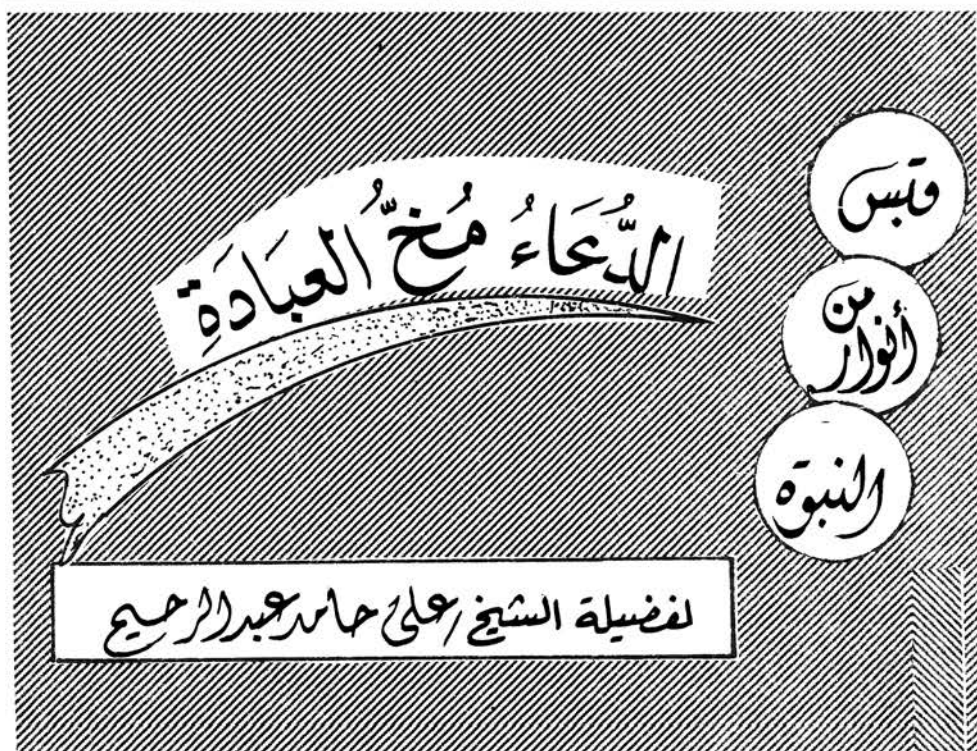 قبس
من
أنوار
النبوة
الدُّعَاءُ مُخُّ العِبَادَةِ
لفضيلة الشيخ / على حامد عبد الرحيم